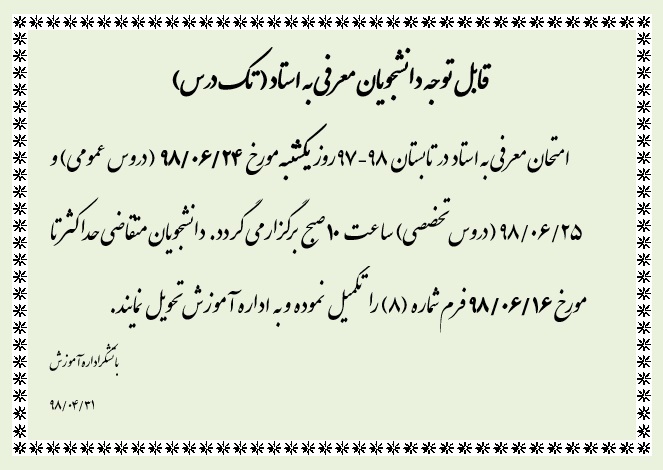 قابل توجه دانشجویان معرفی به استاد (تک درس)
امتحان معرفی به استاد در تابستان ۹۸-۹۷ روز یکشنبه مورخ ۹۸/۰۶/۲۴ (دروس عمومی) و
۹۸/۰۶/۲۵ (دروس تخصصی) ساعت ۱۰ صبح برگزار می گردد. دانشجویان متقاضی حداکثر تا
مورخ ۹۸/۰۶/۱۶ فرم شماره (۸) را تکمیل نموده و به اداره آموزش تحویل نمایند.
باتشکر اداره آموزش
۹۸/۰۴/۳۱